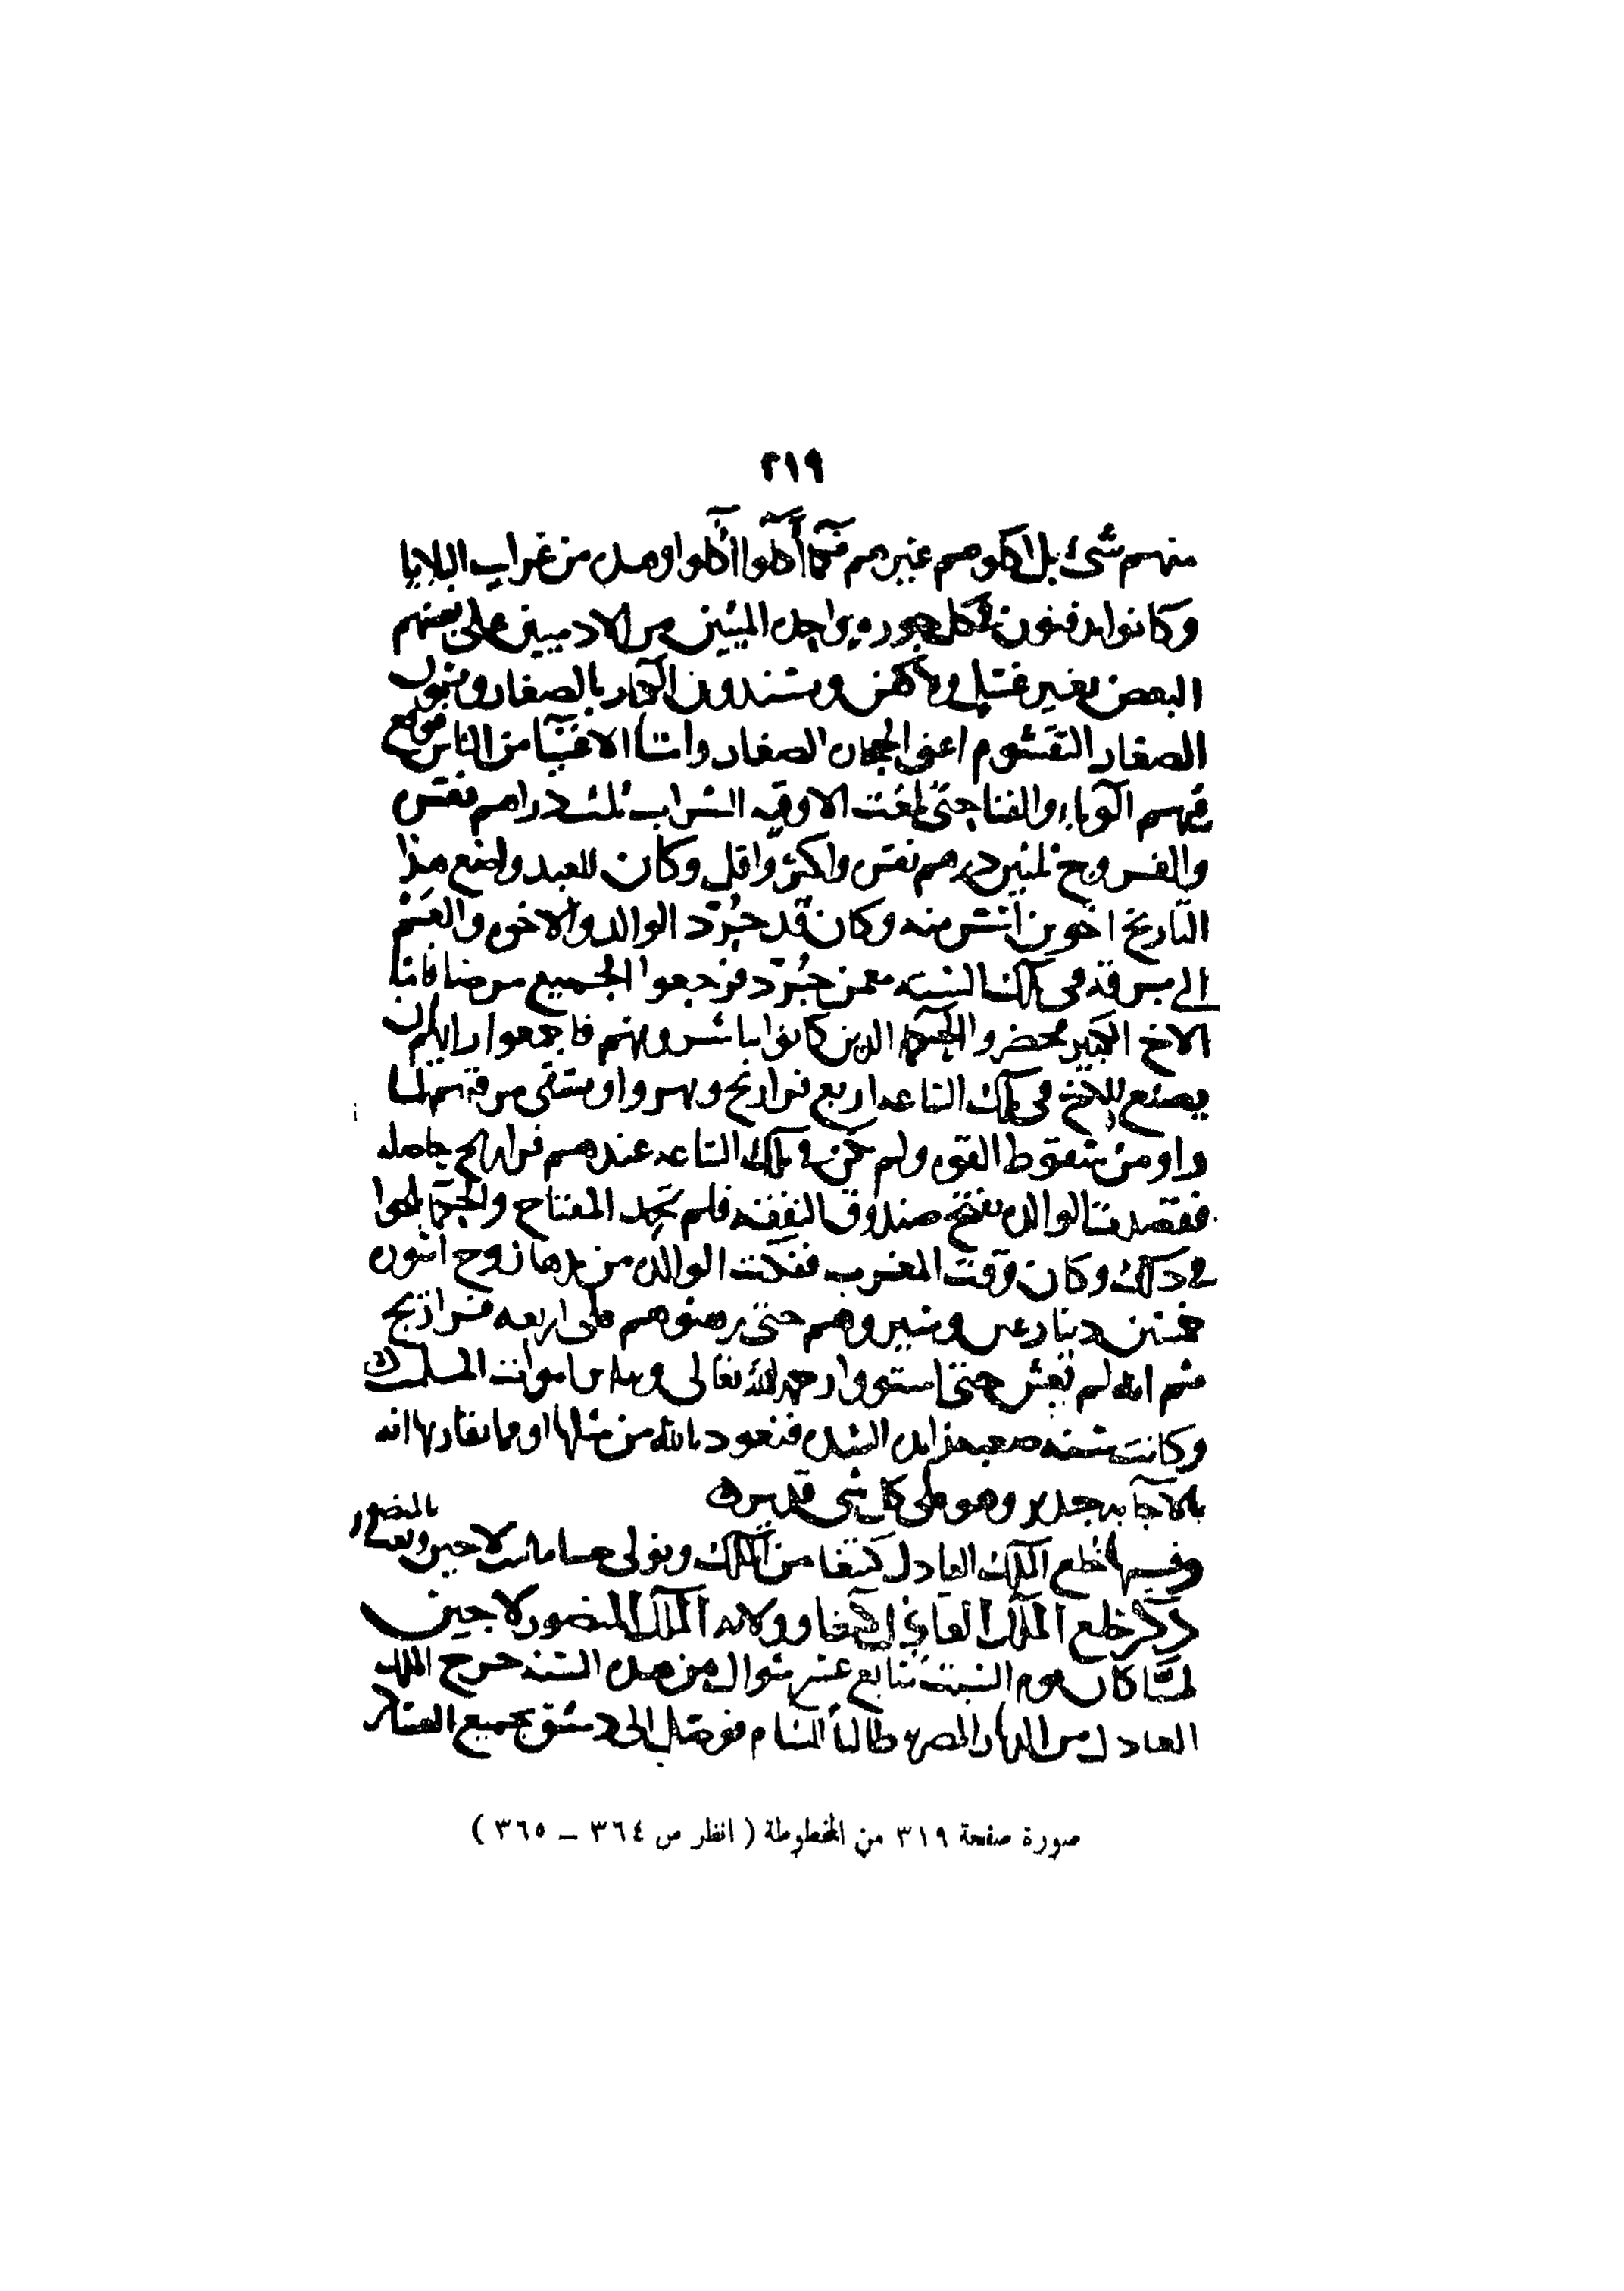 ٣١٩
منهم شئ بل اكلوهم غيرهم فكما أكلوا أُكلوا وهذه من غرايب البلايا
وكانوا يدفنون لكل جوره من الميتين من الادميين على بعضهم
البعض بغير غسل ولا كفن ويسندون الكبار بالصغار ويقولون
الصغار القشوم اعني الحجاره الصغار واما الاغنيا من الناس فوقع
فيهم الوباء والفنا حتى بلغت الاوقيه الشراب ثلثه دراهم فقس
والفروج ثلثين درهم نقس واكثر واقل وكان للعبد واضع هذا
التاريخ اخوين انشى منه وكان قد جُرّد الوالد والاخوه والعم
الى سرقه في تلك السنه ممن جُرّد فرجعوا الجميع مرضا فاما
الاخ الكبير محضر والحكما الذين كانوا يباشرونهم فاجمعوا رايهم ان
يصنع للاخ في تلك الساعه اربع فراريج ويهروا ويسقى مرقتهم لما
راو من سقوط القوه ولم يكن في تلك الساعه عندهم فراريج حاصله
فقصدت الوالده تفتح صندوق النفقه فلم تجد المفتاح والحكما لحوا
في ذلك وكان وقت المغرب ففكت الوالده من يدها زوج اسوره
خمسين دينار عين وسيروهم حتى رهنوهم على اربعه فراريج
ثم انه لم يعش حتى استووا رحمه الله تعالى وساير اموات المسلمين
وكانت سنه صعبه زايده الشده فنعود بالله من مثلها او مما يقاربها انه
بالاجابه جدير وهو على كل شي قدير
وفيها خلع الملك العادل كتبغا من الملك وتولى حسام الدين لاجين ونعت بالمنصور
ذكر خلع الملك العادل كتبغا وولايه الملك المنصور لاجين
لما كان يوم السبت سابع عشر شوال من هذه السنه خرج الملك
العادل من الديار المصريه طالباً الشام فوصل الى دمشق بجميع العساكر
صورة صفحة ٣١٩ من المخطوطة ( انظر ص ٣٦٤ – ٣٦٥ )